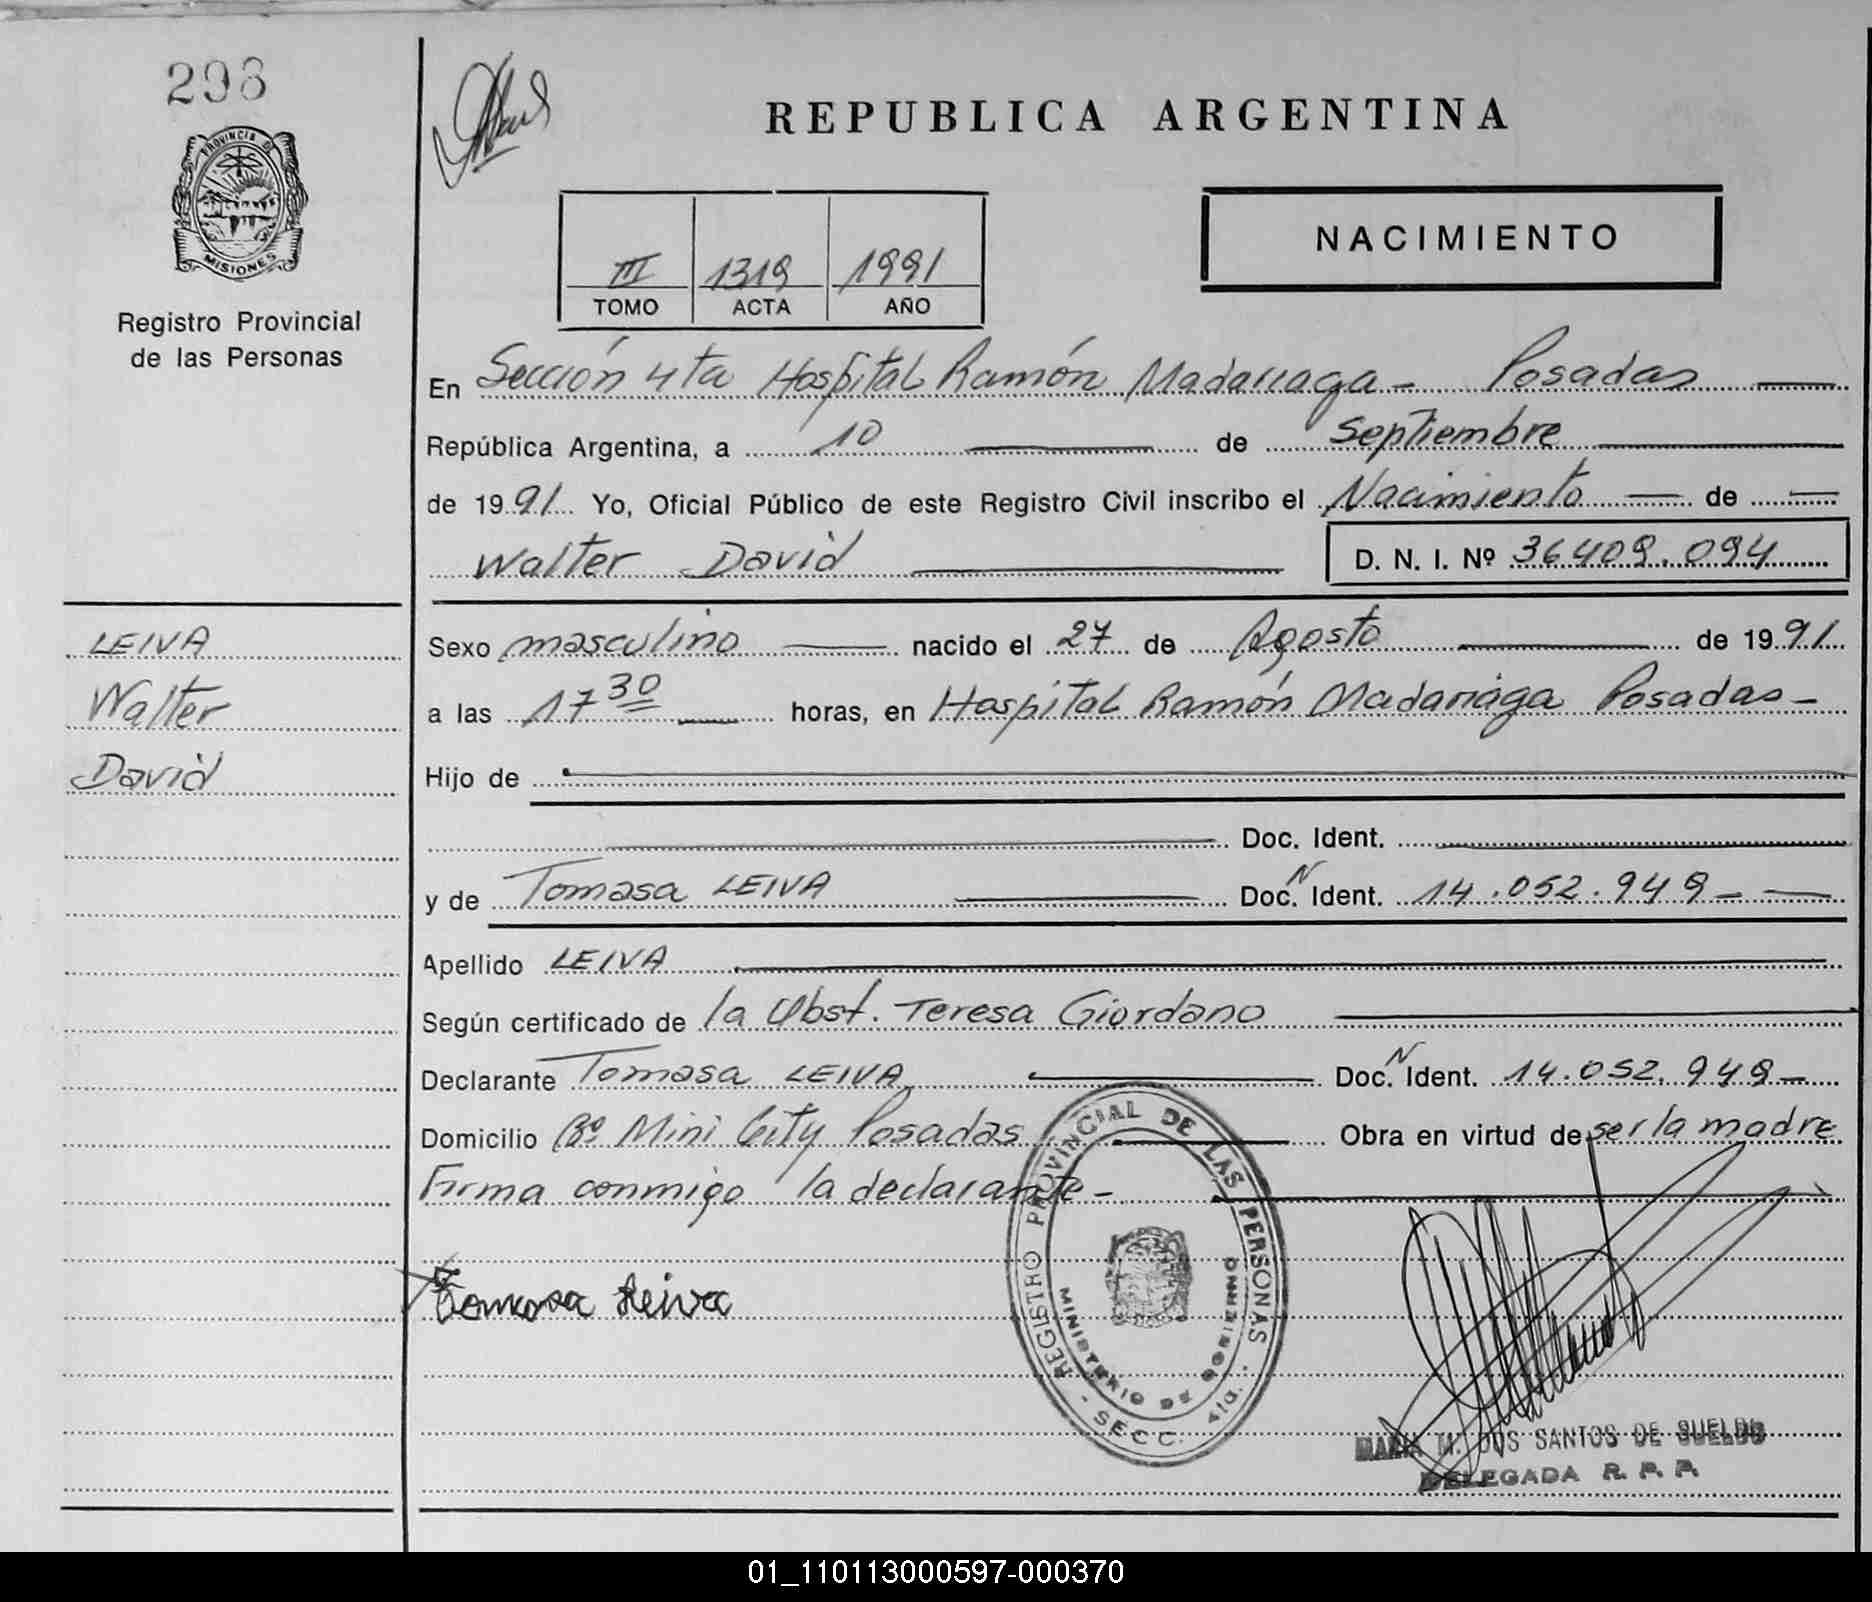 298
PROVINCIA DE
MISIONES
Registro Provincial
de las Personas
REPUBLICA ARGENTINA
III 1319 1991
TOMO ACTA AÑO
NACIMIENTO
En Sección 4ta Hospital Ramón Madariaga - Posadas
República Argentina, a 10 de Septiembre
de 1991 Yo, Oficial Público de este Registro Civil inscribo el Nacimiento de
Walter David D. N. I. Nº 36409.094
LEIVA
Walter
David
Sexo masculino nacido el 27 de Agosto de 1991
a las 17 30 horas, en Hospital Ramón Madariaga Posadas -
Hijo de
Doc. Ident.
y de Tomasa LEIVA Doc. N Ident. 14.052.949 -
Apellido LEIVA
Según certificado de la Obst. Teresa Giordano
Declarante Tomasa LEIVA Doc. N Ident. 14.052.949 -
Domicilio Bº Mini City Posadas Obra en virtud de ser la madre
Firma conmigo la declarante -
Tomasa Leiva
REGISTRO PROVINCIAL DE LAS PERSONAS
MINISTERIO DE GOBIERNO
- SECC. 4ta. -
MARIA M. DOS SANTOS DE SUELDO
DELEGADA R. P. P.
01_110113000597-000370